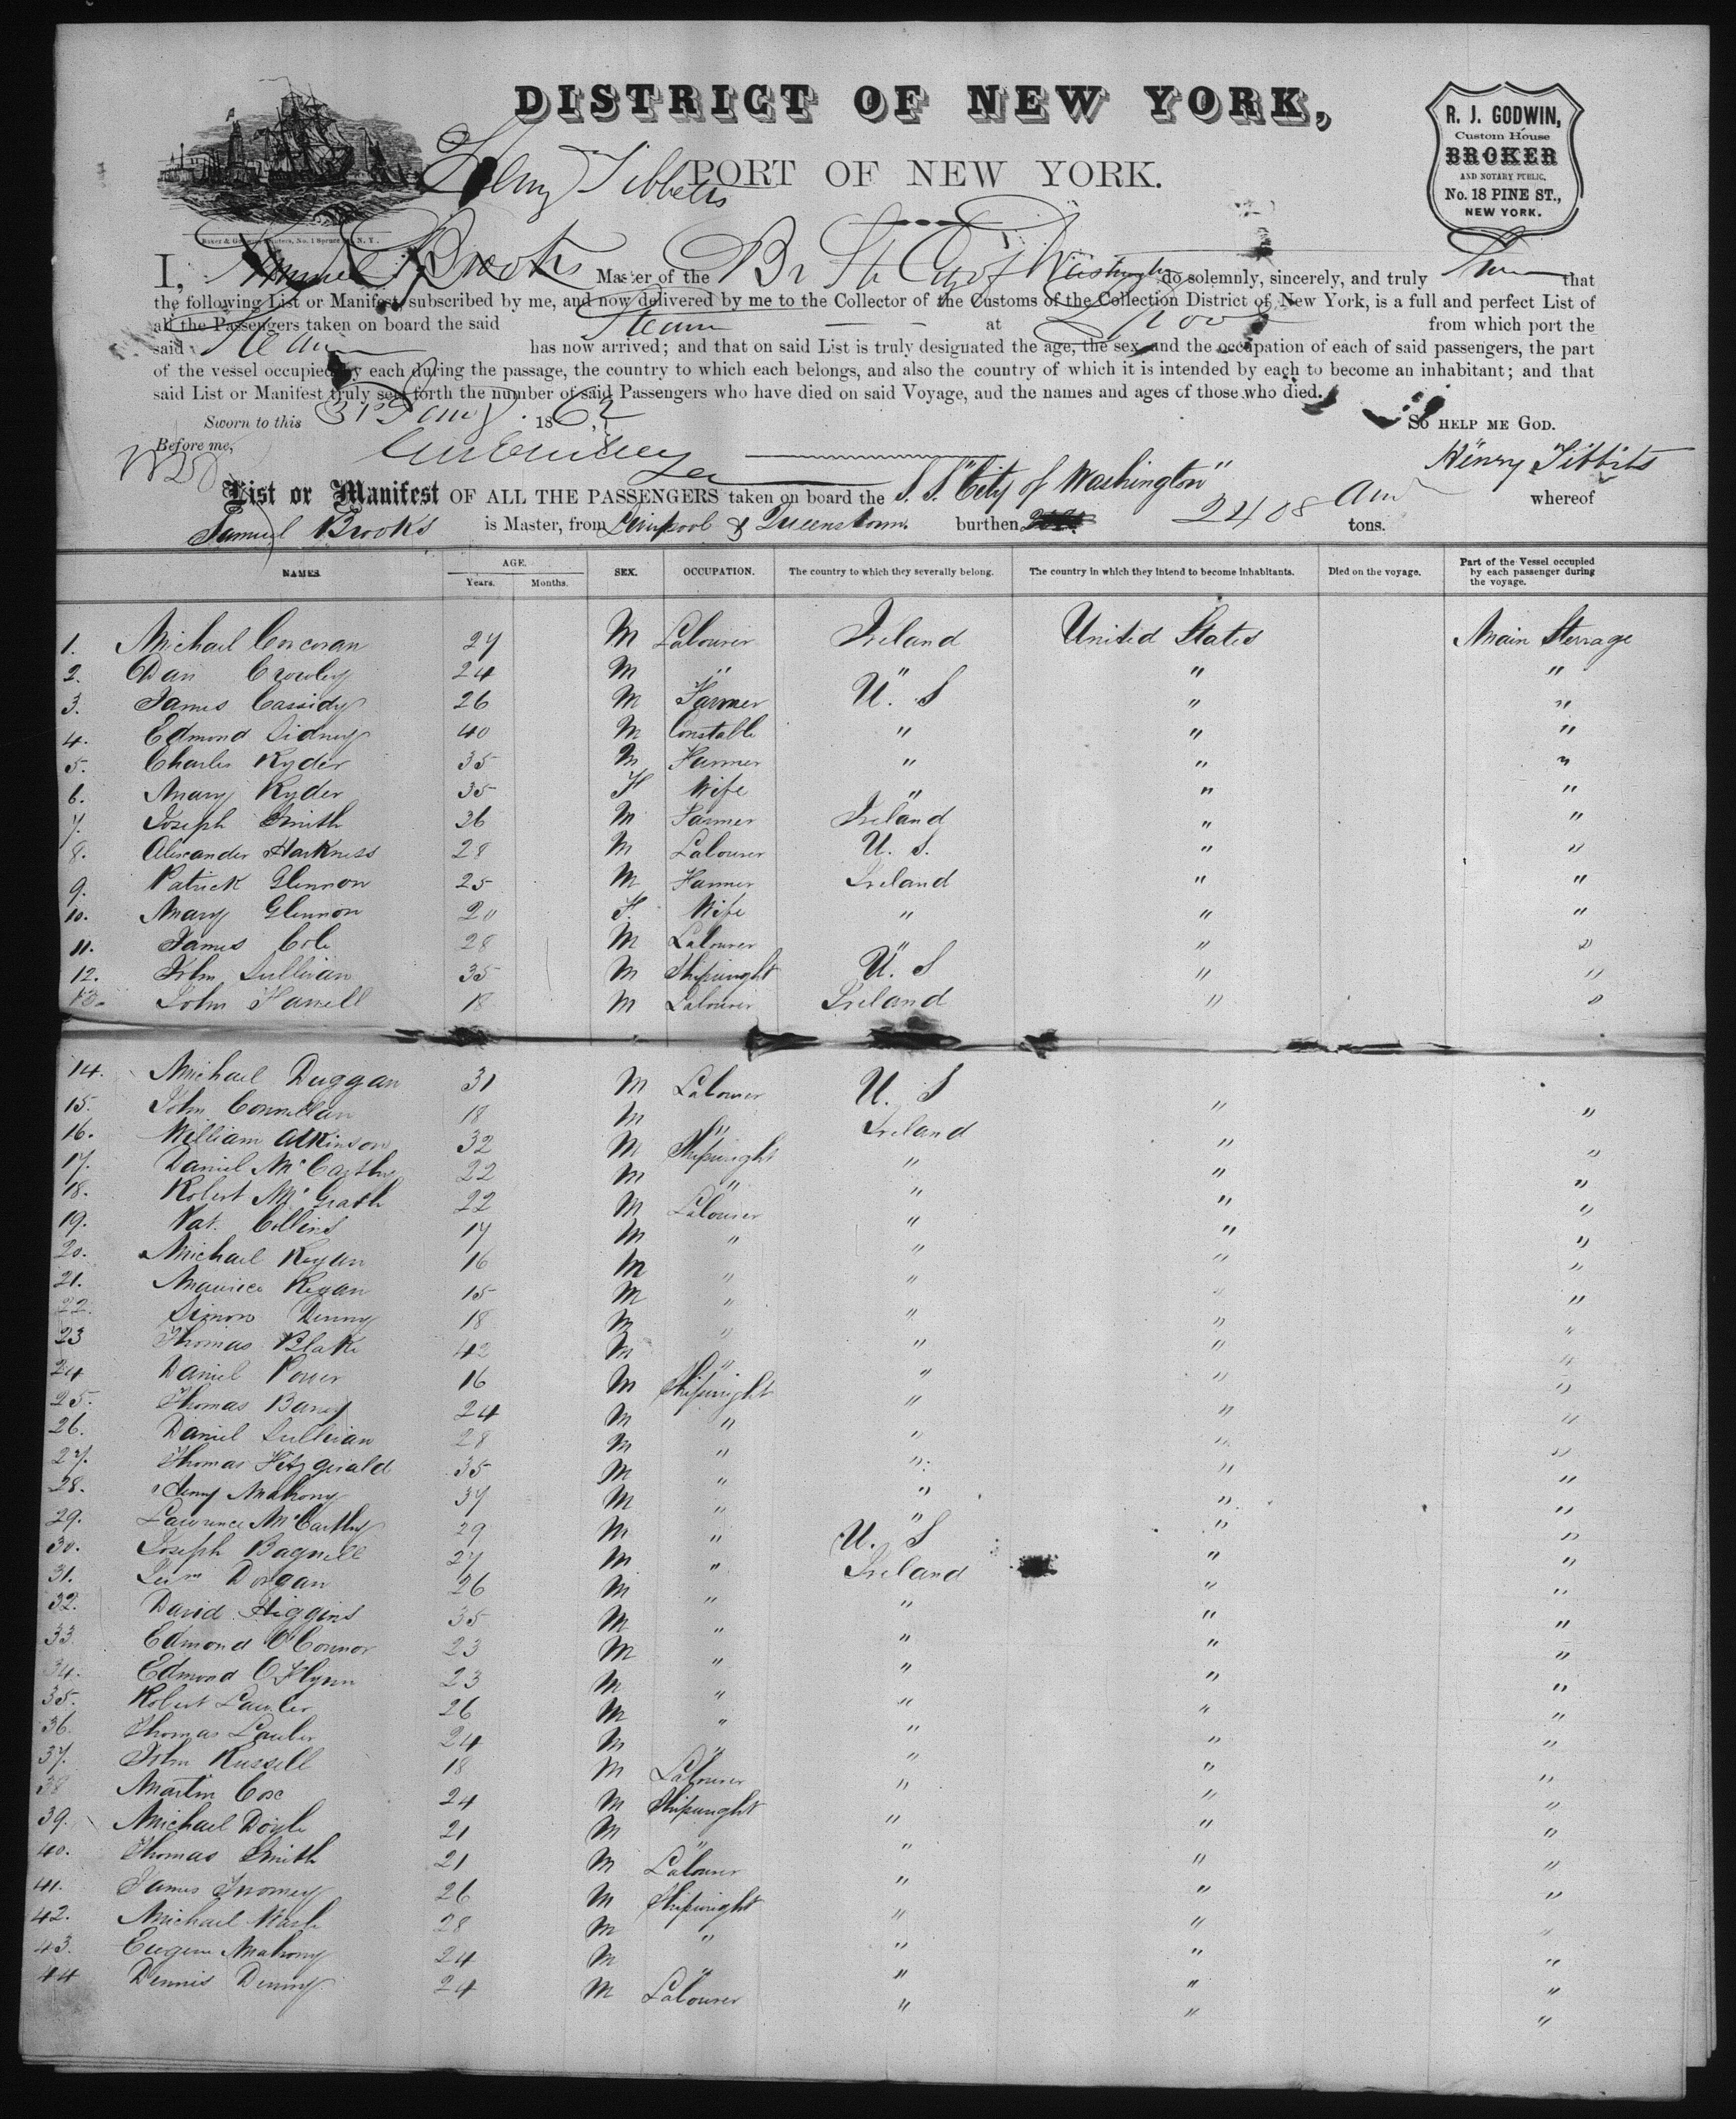 DISTRICT OF NEW YORK,
PORT OF NEW YORK.
Henry Tibbetts
R. J. GODWIN,
Custom House
BROKER
AND NOTARY PUBLIC,
No. 18 PINE ST.,
NEW YORK.
I, Samuel Brooks Master of the Br St City of Washington do solemnly, sincerely, and truly Swear that
the following List or Manifest, subscribed by me, and now delivered by me to the Collector of the Customs of the Collection District of New York, is a full and perfect List of
all the Passengers taken on board the said Steamer at L'pool from which port the
said Steamer has now arrived; and that on said List is truly designated the age, the sex, and the occupation of each of said passengers, the part
of the vessel occupied by each during the passage, the country to which each belongs, and also the country of which it is intended by each to become an inhabitant; and that
said List or Manifest truly sets forth the number of said Passengers who have died on said Voyage, and the names and ages of those who died.
Sworn to this 31st Aug 1863 SO HELP ME GOD.
Before me,
Henry Tibbits
List or Manifest OF ALL THE PASSENGERS taken on board the S. S. "City of Washington" whereof
Samuel Brooks is Master, from Liverpool & Queenstown burthen 2408 tons.
NAMES. AGE. Years. Months. SEX. OCCUPATION. The country to which they severally belong. The country in which they intend to become inhabitants. Died on the voyage. Part of the Vessel occupied by each passenger during the voyage.
1. Michael Corcoran 27 M Labourer Ireland United States Main Sterrage
2. Dan Crowley 24 M " " " "
3. James Cassidy 26 M Farmer U. S " "
4. Edmond Sidney 40 M Constable " " "
5. Charles Ryder 35 M Farmer " " "
6. Mary Ryder 35 F Wife " " "
7. Joseph Smith 26 M Farmer Ireland " "
8. Alexander Harkness 28 M Labourer U. S. " "
9. Patrick Glennon 25 M Farmer Ireland " "
10. Mary Glennon 20 F. Wife " " "
11. James Cole 28 M Labourer " " "
12. John Sullivan 35 M Shipwright U. S " "
13. John Farrell 18 M Labourer Ireland " "
14. Michael Duggan 31 M Labourer U. S " "
15. John Connellan 18 M " Ireland " "
16. William Atkinson 32 M Shipwright " " "
17. Daniel McCarthy 22 M " " " "
18. Robert McGrath 22 M Labourer " " "
19. Pat. Collins 17 M " " " "
20. Michael Regan 16 M " " " "
21. Maurice Regan 15 M " " " "
22. Simon Denny 18 M " " " "
23 Thomas Blake 42 M " " " "
24 Daniel Power 16 M Shipwright " " "
25. Thomas Barry 24 M " " " "
26. Daniel Sullivan 28 M " " " "
27. Thomas Fitzgerald 35 M " " " "
28. Jerry Mahony 37 M " " " "
29. Lawrence McCarthy 29 M " U. S " "
30. Joseph Bagnell 27 M " Ireland " "
31. Dorgan 26 M " " " "
32. David Higgins 35 M " " " "
33. Edmond O'Connor 23 M " " " "
34. Edmond O'Flynn 23 M " " " "
35. Robert Lawler 26 M " " " "
36. Thomas Lawler 24 M " " " "
37. John Russell 18 M Labourer " " "
38 Martin Cox 24 M Shipwright " " "
39. Michael Doyle 21 M " " " "
40. Thomas Smith 21 M Labourer " " "
41. James Twomey 26 M Shipwright " " "
42. Michael 28 M " " " "
43. Eugene Mahony 24 M " " " "
44 Dennis Denny 24 M Labourer " " "